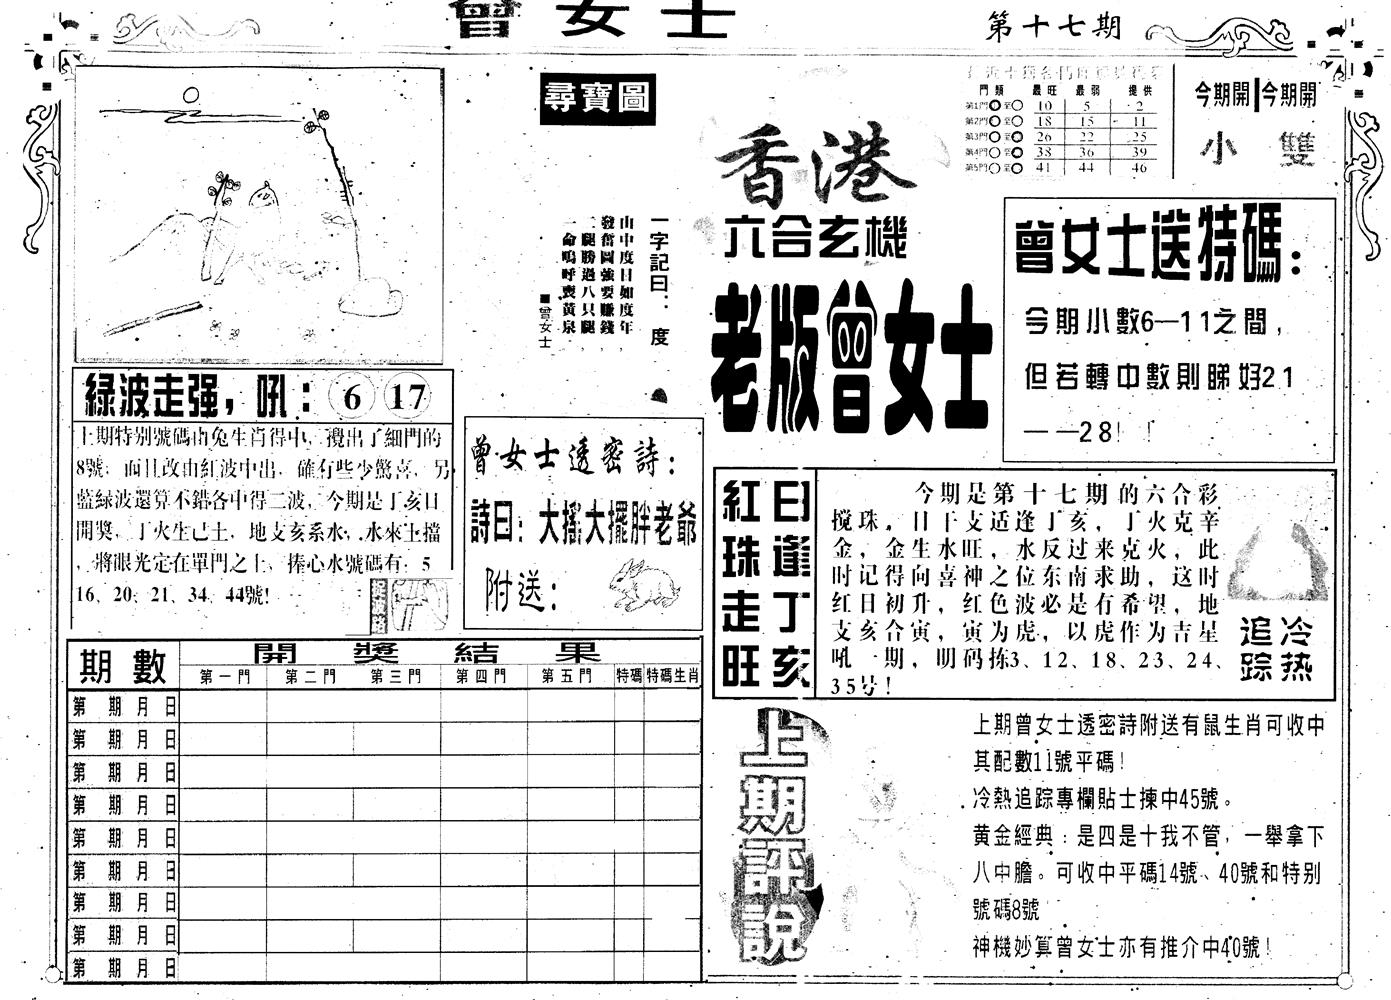 曾女士
第十七期
尋寶圖
一字記曰：度
山中度日如度年，
發奮圖強要賺錢，
二腿勝過八只腿，
一命嗚呼喪黃泉。
■曾女士
香港
六合玄機
老版曾女士
門類 最旺 最弱 提供
第1門 至 10 5 2
第2門 至 18 15 11
第3門 至 26 22 25
第4門 至 38 36 39
第5門 至 41 44 46
今期開 今期開
小 雙
曾女士送特碼：
今期小數6—11之間，
但若轉中數則睇好21
——28！！
綠波走强，吼：6 17
上期特別號碼由兔生肖得中，攪出了細門的
8號，而且改由紅波中出，確有些少驚喜，另
藍綠波還算不錯各中得二波，今期是丁亥日
開獎，丁火生己土，地支亥系水，水來土擋
，將眼光定在單門之上，捧心水號碼有：5
16、20、21、34、44號!
曾女士透密詩：
詩曰：大搖大擺胖老爺
附送：
紅珠走旺
日逢丁亥
今期是第十七期的六合彩
搅珠，日干支适逢丁亥，丁火克辛
金，金生水旺，水反过来克火，此
时记得向喜神之位东南求助，这时
红日初升，红色波必是有希望，地
支亥合寅，寅为虎，以虎作为吉星
吼一期，明码拣3、12、18、23、24、
35号!
追踪
冷热
期數 開獎結果
第一門 第二門 第三門 第四門 第五門 特碼 特碼生肖
第 期 月 日
第 期 月 日
第 期 月 日
第 期 月 日
第 期 月 日
第 期 月 日
第 期 月 日
第 期 月 日
第 期 月 日
上期評說
上期曾女士透密詩附送有鼠生肖可收中
其配數11號平碼！
冷熱追踪專欄貼士揀中45號。
黄金經典：是四是十我不管，一舉拿下
八中膽。可收中平碼14號、40號和特别
號碼8號
神機妙算曾女士亦有推介中40號！